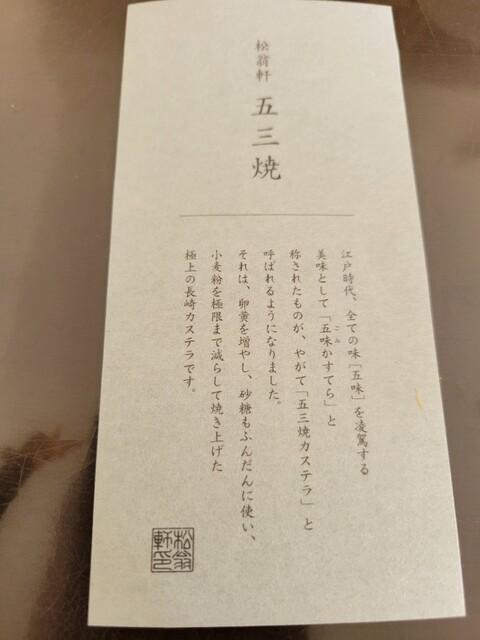 松翁軒 五三焼
江戸時代、全ての味［五味］を凌駕する
美味として「五味かすてら」と
ごみ
称されたものが、やがて「五三焼カステラ」と
呼ばれるようになりました。
それは、卵黄を増やし、砂糖もふんだんに使い、
小麦粉を極限まで減らして焼き上げた
極上の長崎カステラです。
松翁
軒印